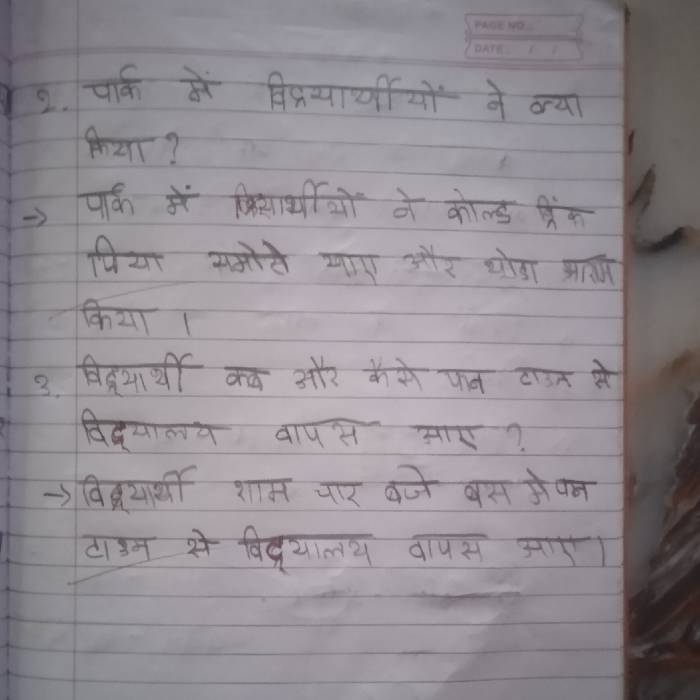 PAGE NO.
DATE: / /
२. पार्क में विद्र्यार्थीयों ने क्या
किया ?
→ पार्क में विद्यार्थीयों ने कोल्ड ड्रिंक
पिया समोते खाए और थोडा आराम
किया ।
३. विद्र्यार्थी कब और कैसे फन टाउन से
विद्र्यालय वापस आए ?
→ विद्र्यार्थी शाम चार बजे बस में फन
टाउन से विद्र्यालय वापस आए ।